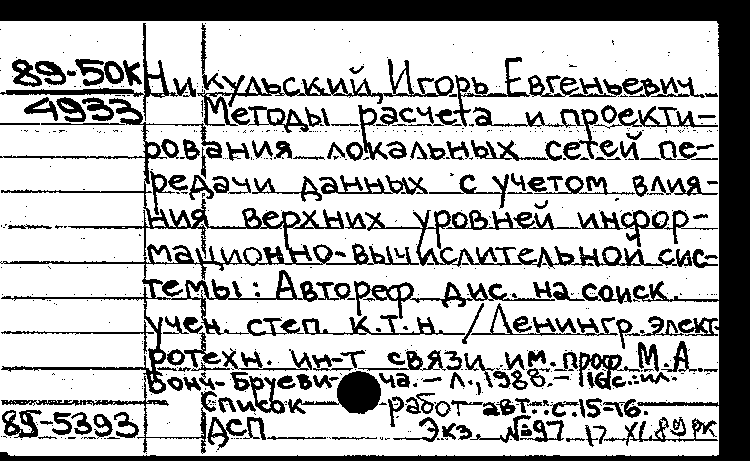 89-50к Никульский, Игорь Евгеньевич
4933 Методы расчета и проекти-
рования локальных сетей пе-
редачи данных с учетом влия-
ния верхних уровней инфор-
мационно-вычислительной сис-
темы: Автореф. дис. на соиск.
учен. степ. к.т.н. / Ленингр. элект-
ротехн. ин-т связи им. проф. М.А
Бонч-Бруеви- ча. – Л., 1988. – 16 с.: ил.
Список работ авт.: с. 15-16.
89-5393 ДСП. Экз. №97. 17 XI.89